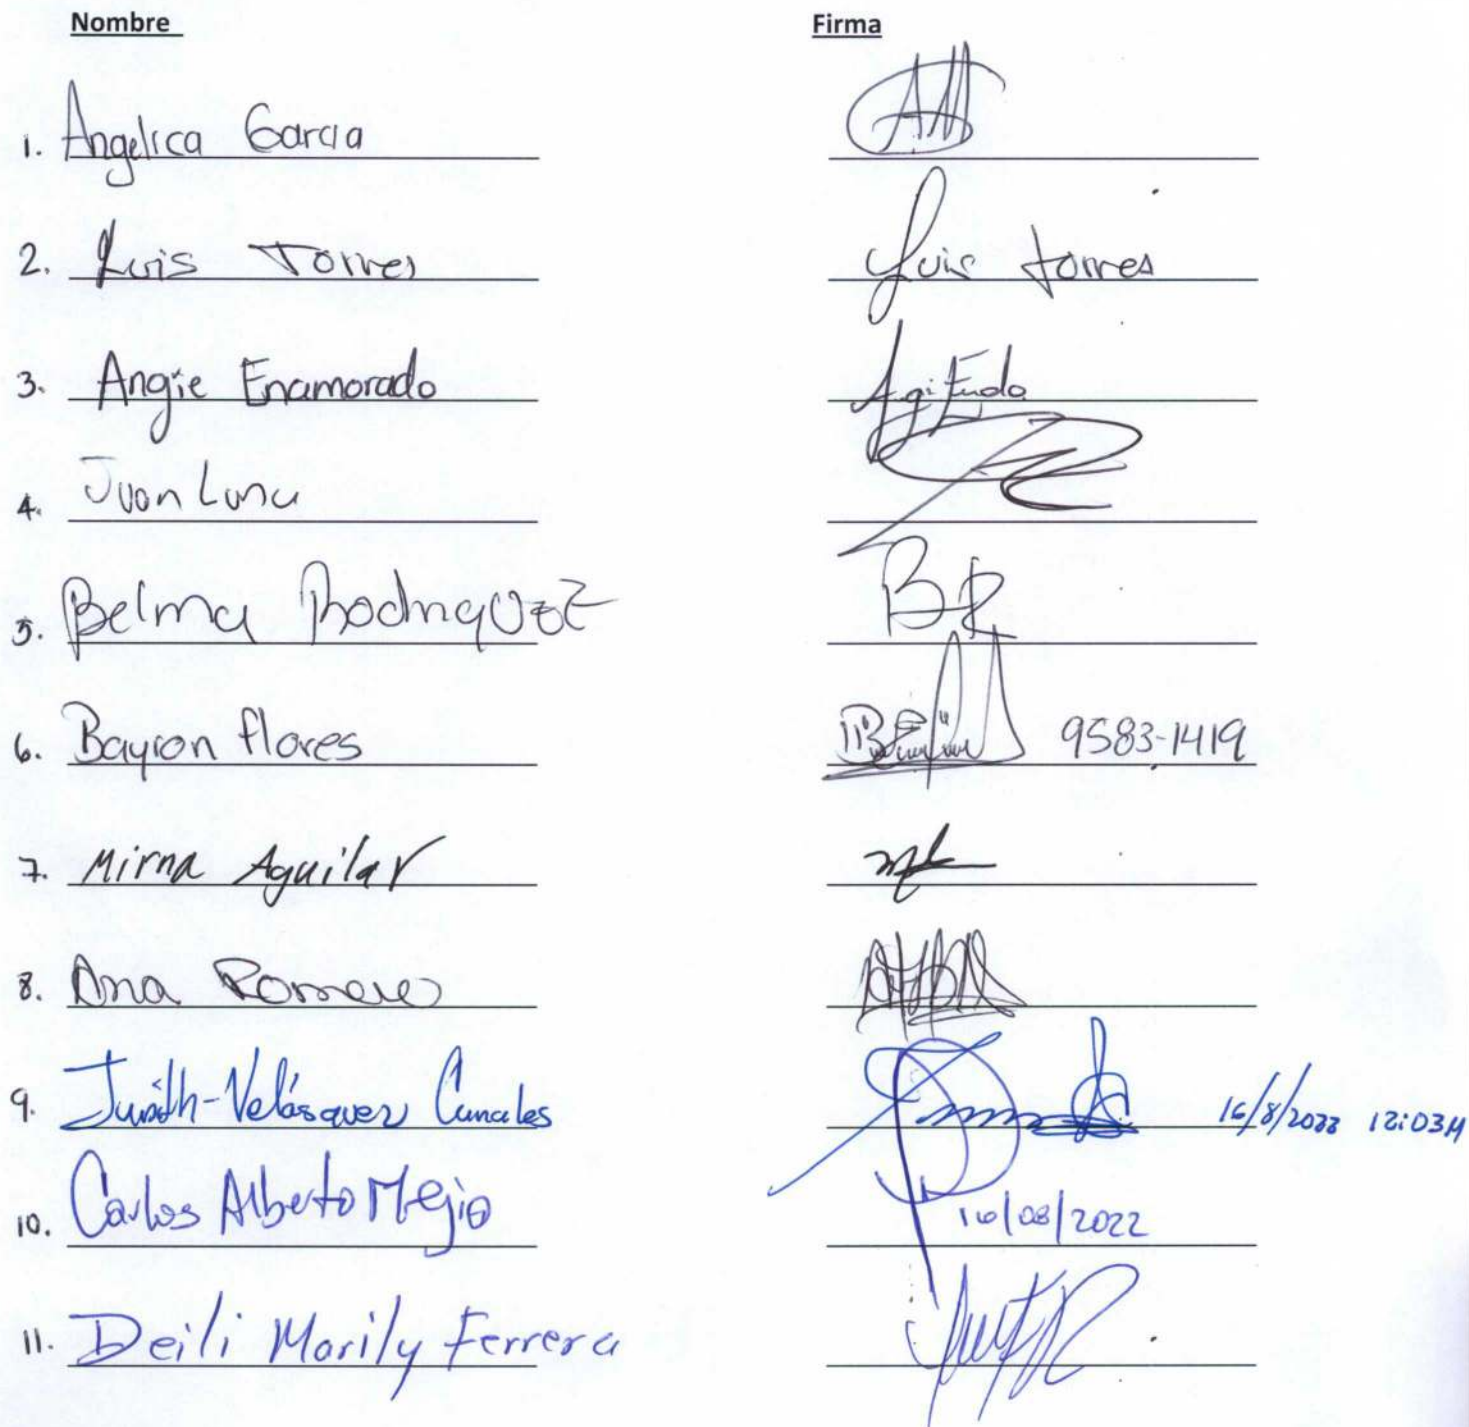 Nombre Firma
1. Angelica Garcia
2. Luis Torres Luis torres
3. Angie Enamorado
4. Juan Luna
5. Belma Rodriguez BR
6. Bayron flores 9583-1419
7. Mirna Aguilar
8. Ana Romero
9. Judith-Velásquez Canales 16/8/2022 12:03M
10. Carlos Alberto Mejia 16/08/2022
11. Deili Marily Ferrera